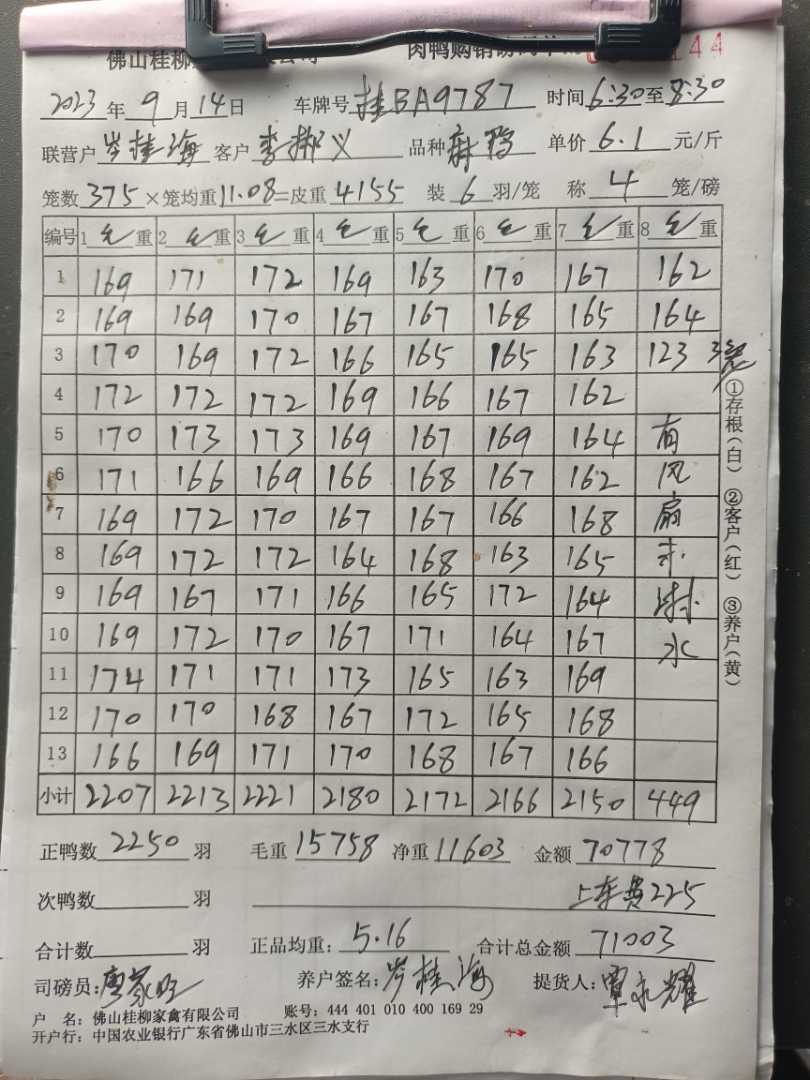 佛山桂柳 肉鸭购销 44
2023年9月14日 车牌号桂BA9787 时间6:30至8:30
联营户岑桂海 客户李彬义 品种 单价6.1元/斤
笼数375×笼均重11.08=皮重4155 装6羽/笼 称4笼/磅
编号 1毛重 2毛重 3毛重 4毛重 5毛重 6毛重 7毛重 8毛重
1 169 171 172 169 163 170 167 162
2 169 169 170 167 167 168 165 164
3 170 169 172 166 165 165 163 123 3笼
4 172 172 172 169 166 167 162
5 170 173 173 169 167 169 164 有
6 171 166 169 166 168 167 162 风
7 169 172 170 167 167 166 168 扇
8 169 172 172 164 168 163 165
9 169 167 171 166 165 172 164
10 169 172 170 167 171 164 167 水
11 174 171 171 173 165 163 169
12 170 170 168 167 172 165 168
13 166 169 171 170 168 167 166
小计 2207 2213 2221 2180 2172 2166 2150 449
①存根(白) ②客户(红) ③养户(黄)
正鸭数2250羽 毛重15758 净重11603 金额70778
次鸭数 羽 上车费225
合计数 羽 正品均重:5.16 合计总金额71003
司磅员: 养户签名:岑桂海 提货人:覃永耀
户 名:佛山桂柳家禽有限公司 账号:444 401 010 400 169 29
开户行:中国农业银行广东省佛山市三水区三水支行